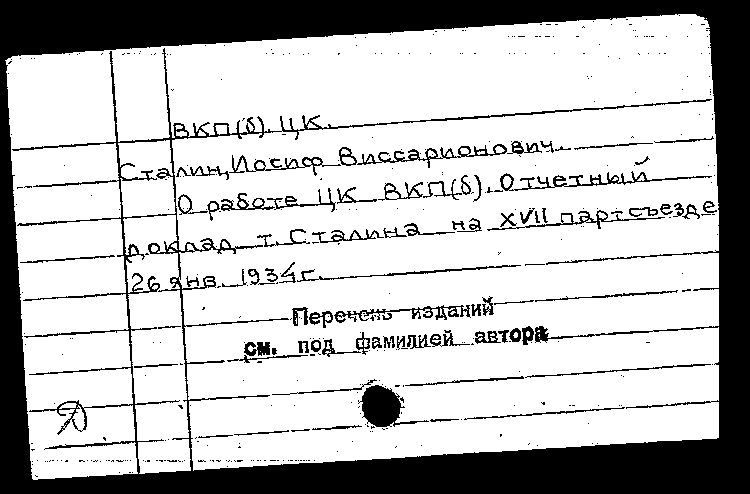 ВКП(б). ЦК.
Сталин, Иосиф Виссарионович.
О работе ЦК ВКП(б). Отчетный
доклад т. Сталина на XVII партсъезде
26 янв. 1934г.
Перечень изданий
см. под фамилией автора
Д